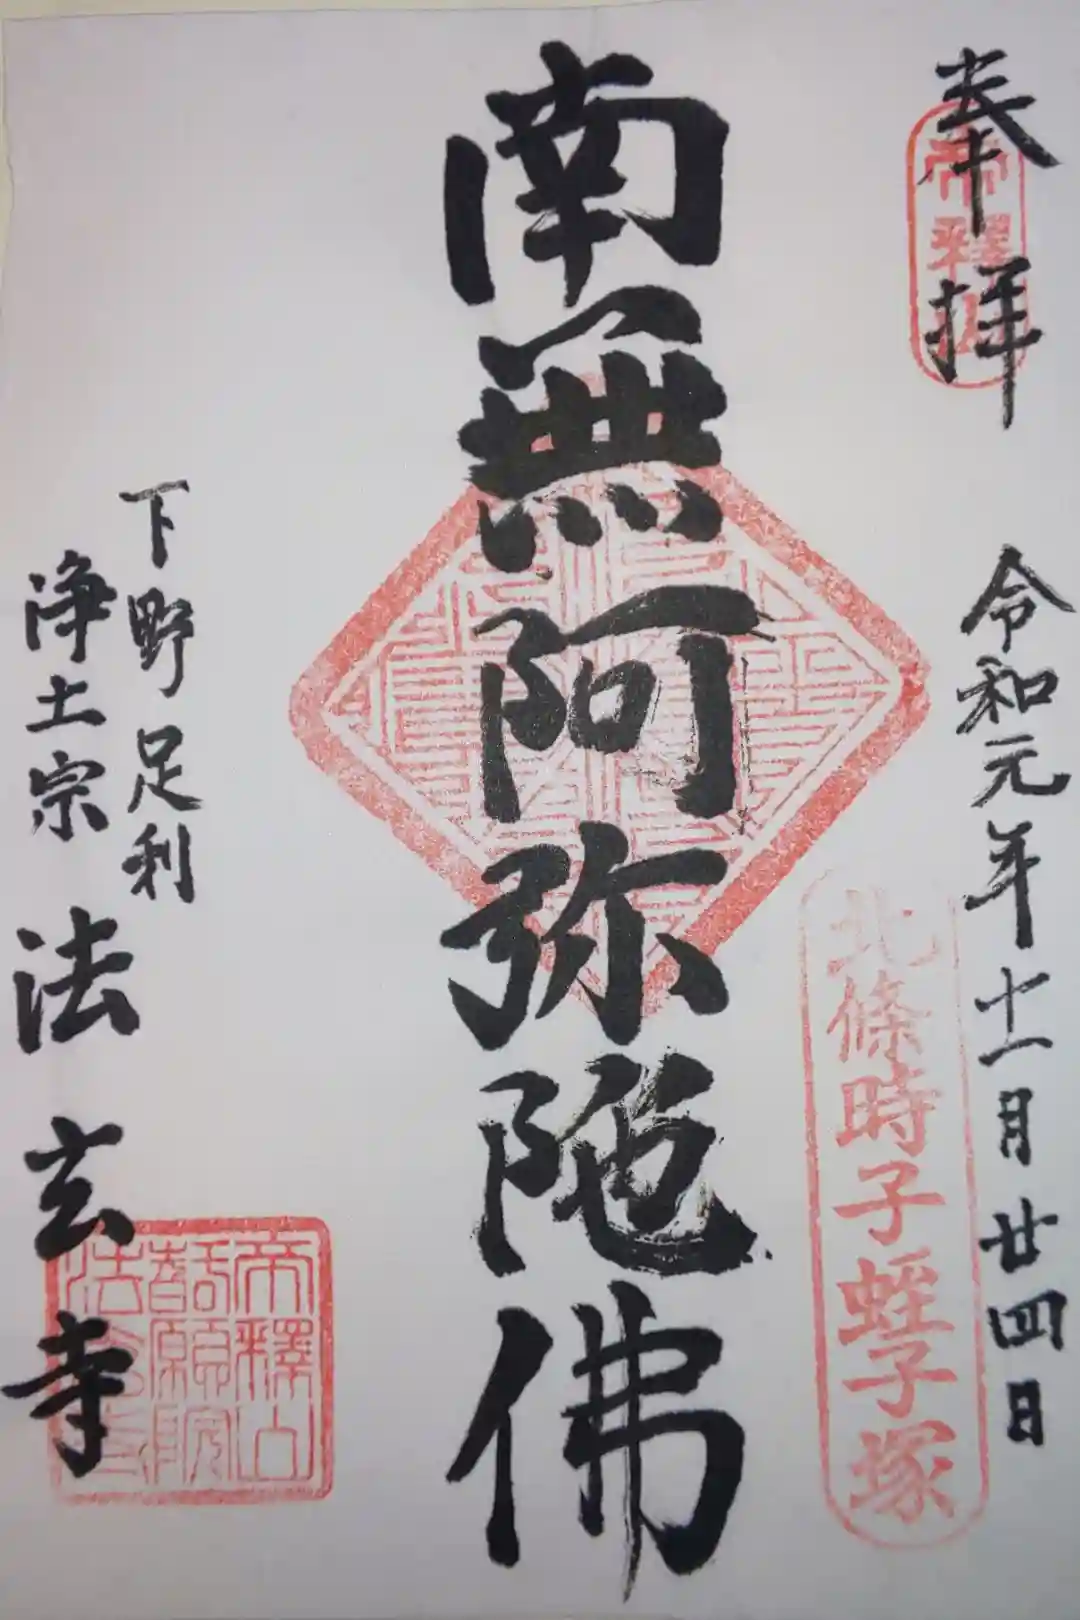 奉拝
帝釋山
令和元年十一月廿四日
北條時子蛭子塚
南無阿弥陀佛
下野足利
浄土宗
法玄寺
帝釋山
願院